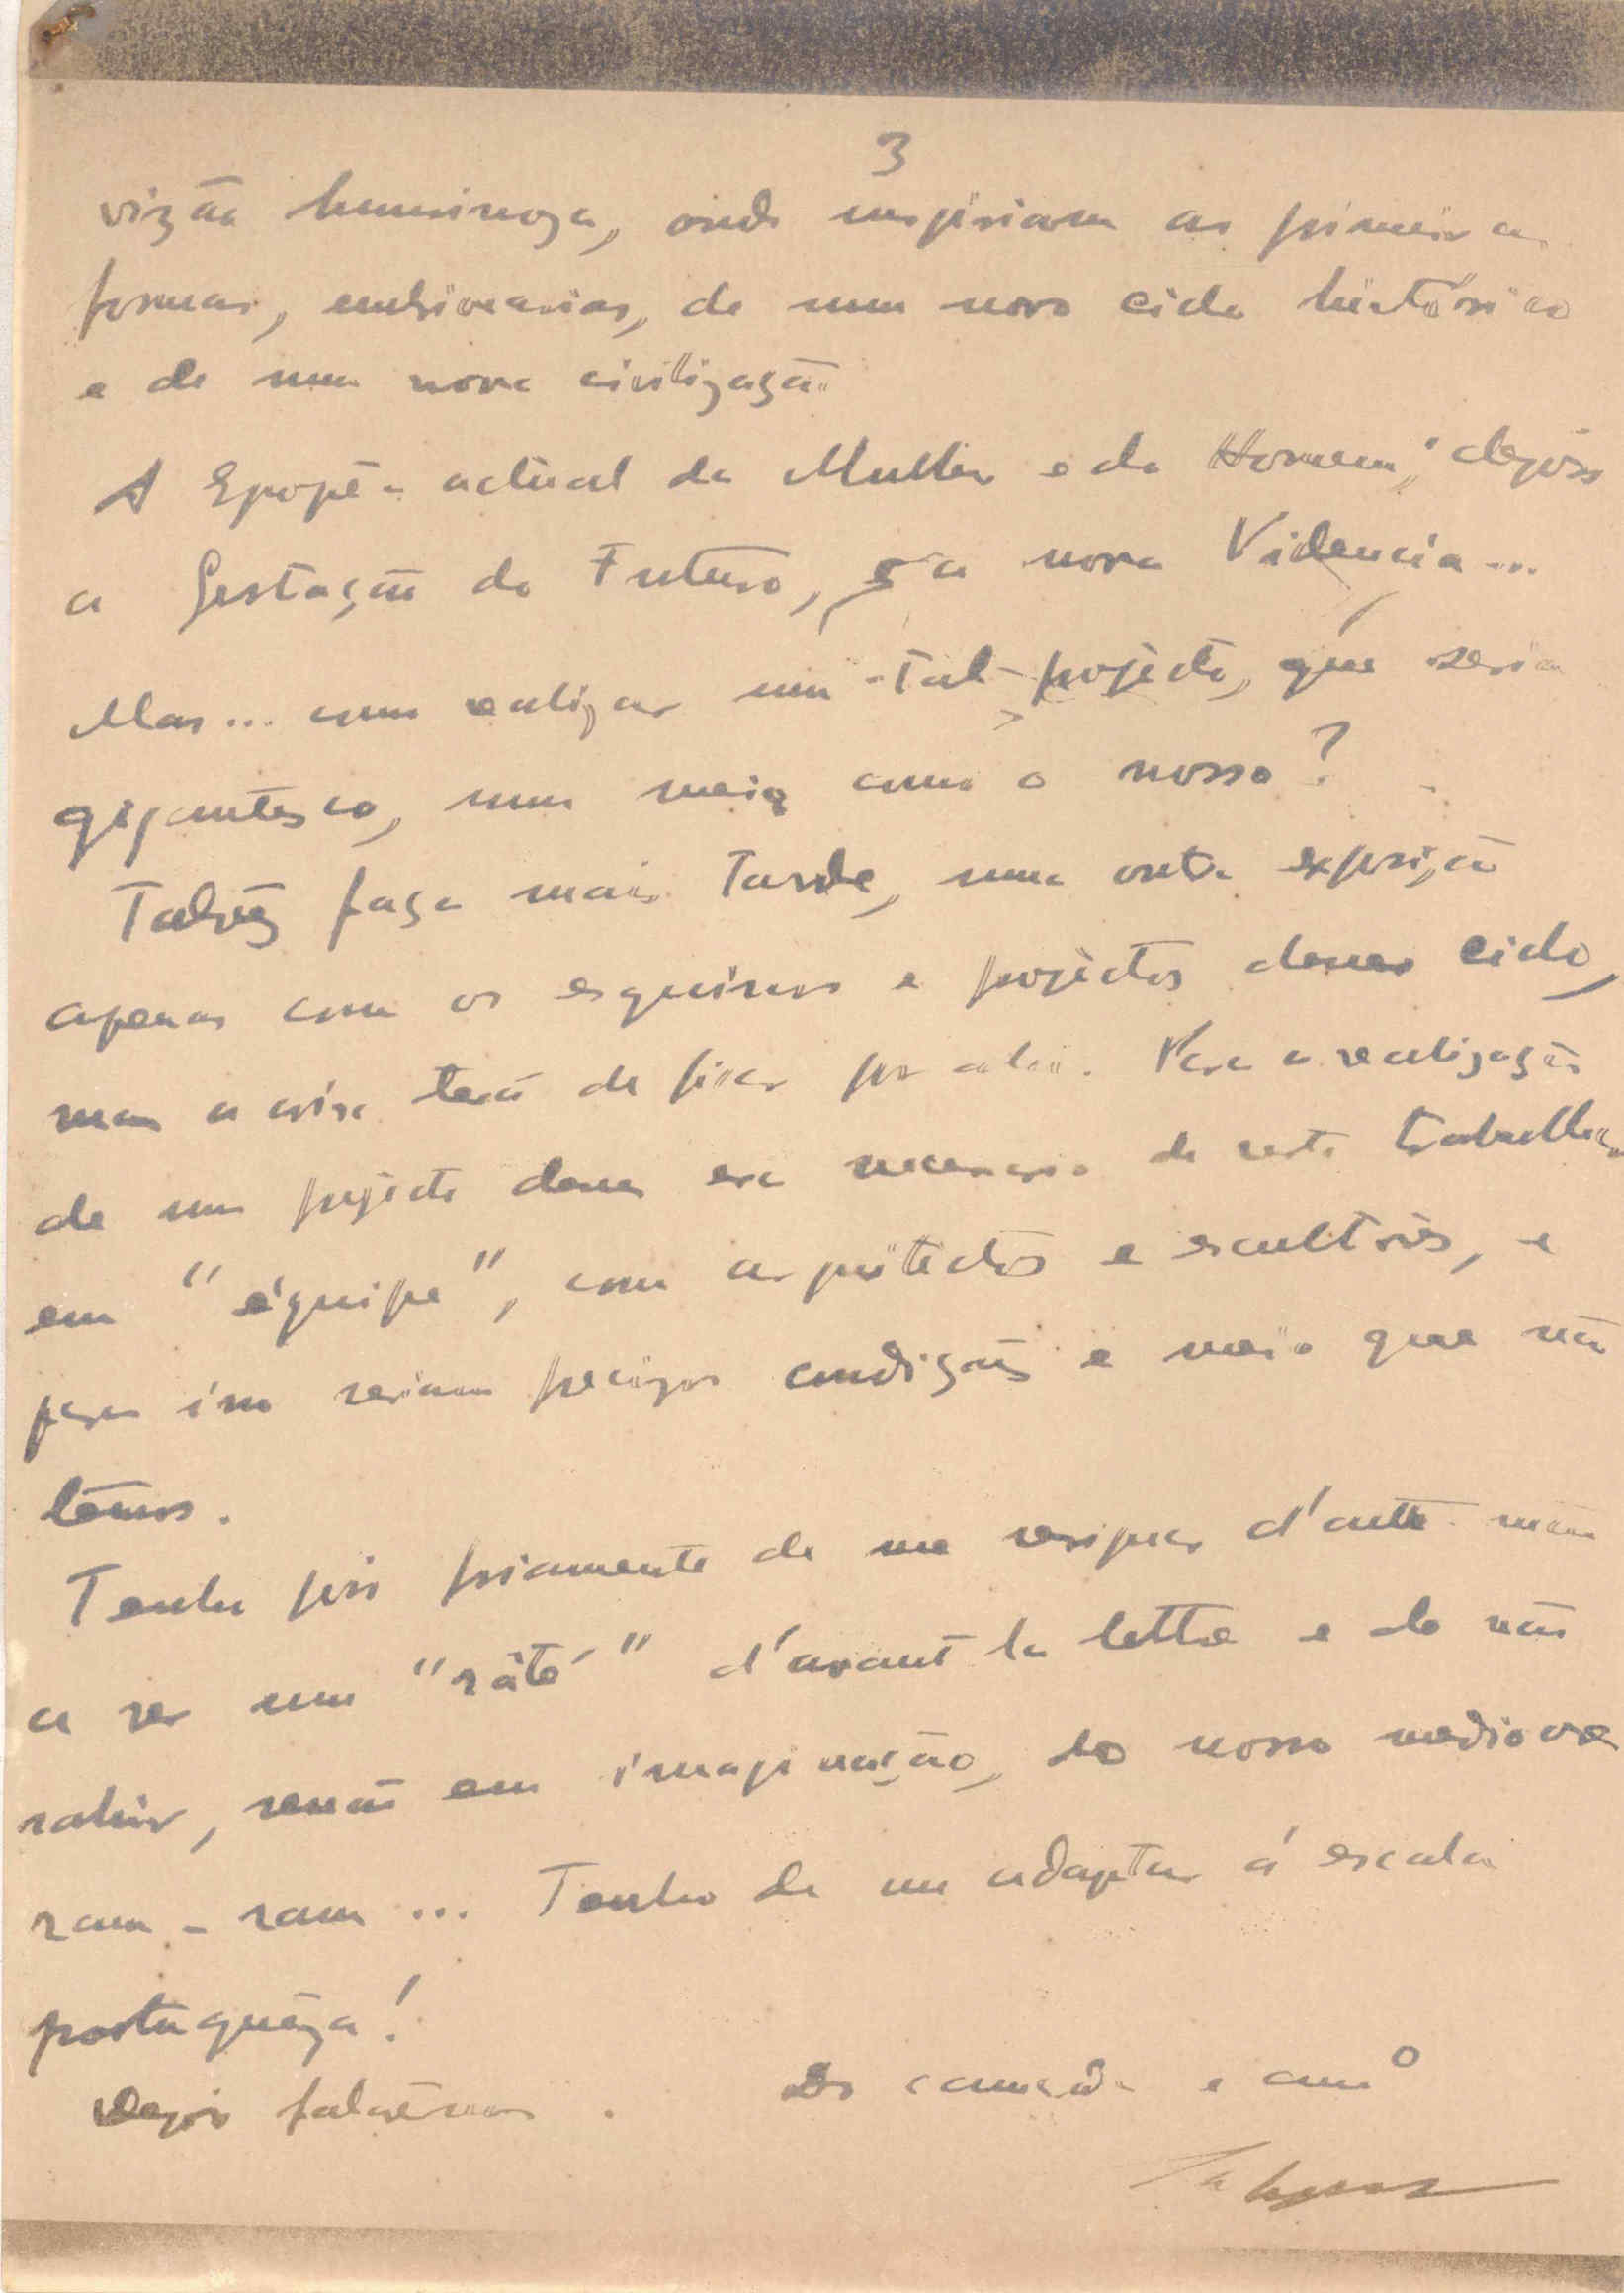 3
vizão luminoza, onde surgiriam as primeiras
formas, embrionarias, de um novo ciclo histórico
e de uma nova civilização.
A Epopêa actual da Mulher e do Homem; depois
a Gestação do Futuro, e a nova Videncia...
Mas... como realizar um tal projecto, que seria
gigantesco, num meio como o nosso?
Talvêz faça mais tarde, numa outra exposição
apenas com os esquissos e projectos desses ciclo,
mas a coisa terá de ficar por ahi. Para a realização
de um projecto desses era necessario de resto trabalhar
em "équipe", com arquitectos e escultores, e
para isso seriam precizos condições e meio que não
têmos.
Tenho pois friamente de me resignar d'ante mão
a ser um "râté" d'avant la lettre e de não
sahir, senão em imaginação, do nosso mediocre
ram-ram... Tenho de me adaptar á escala
portuguêza!
Depois falarêmos. Do camarada e amº